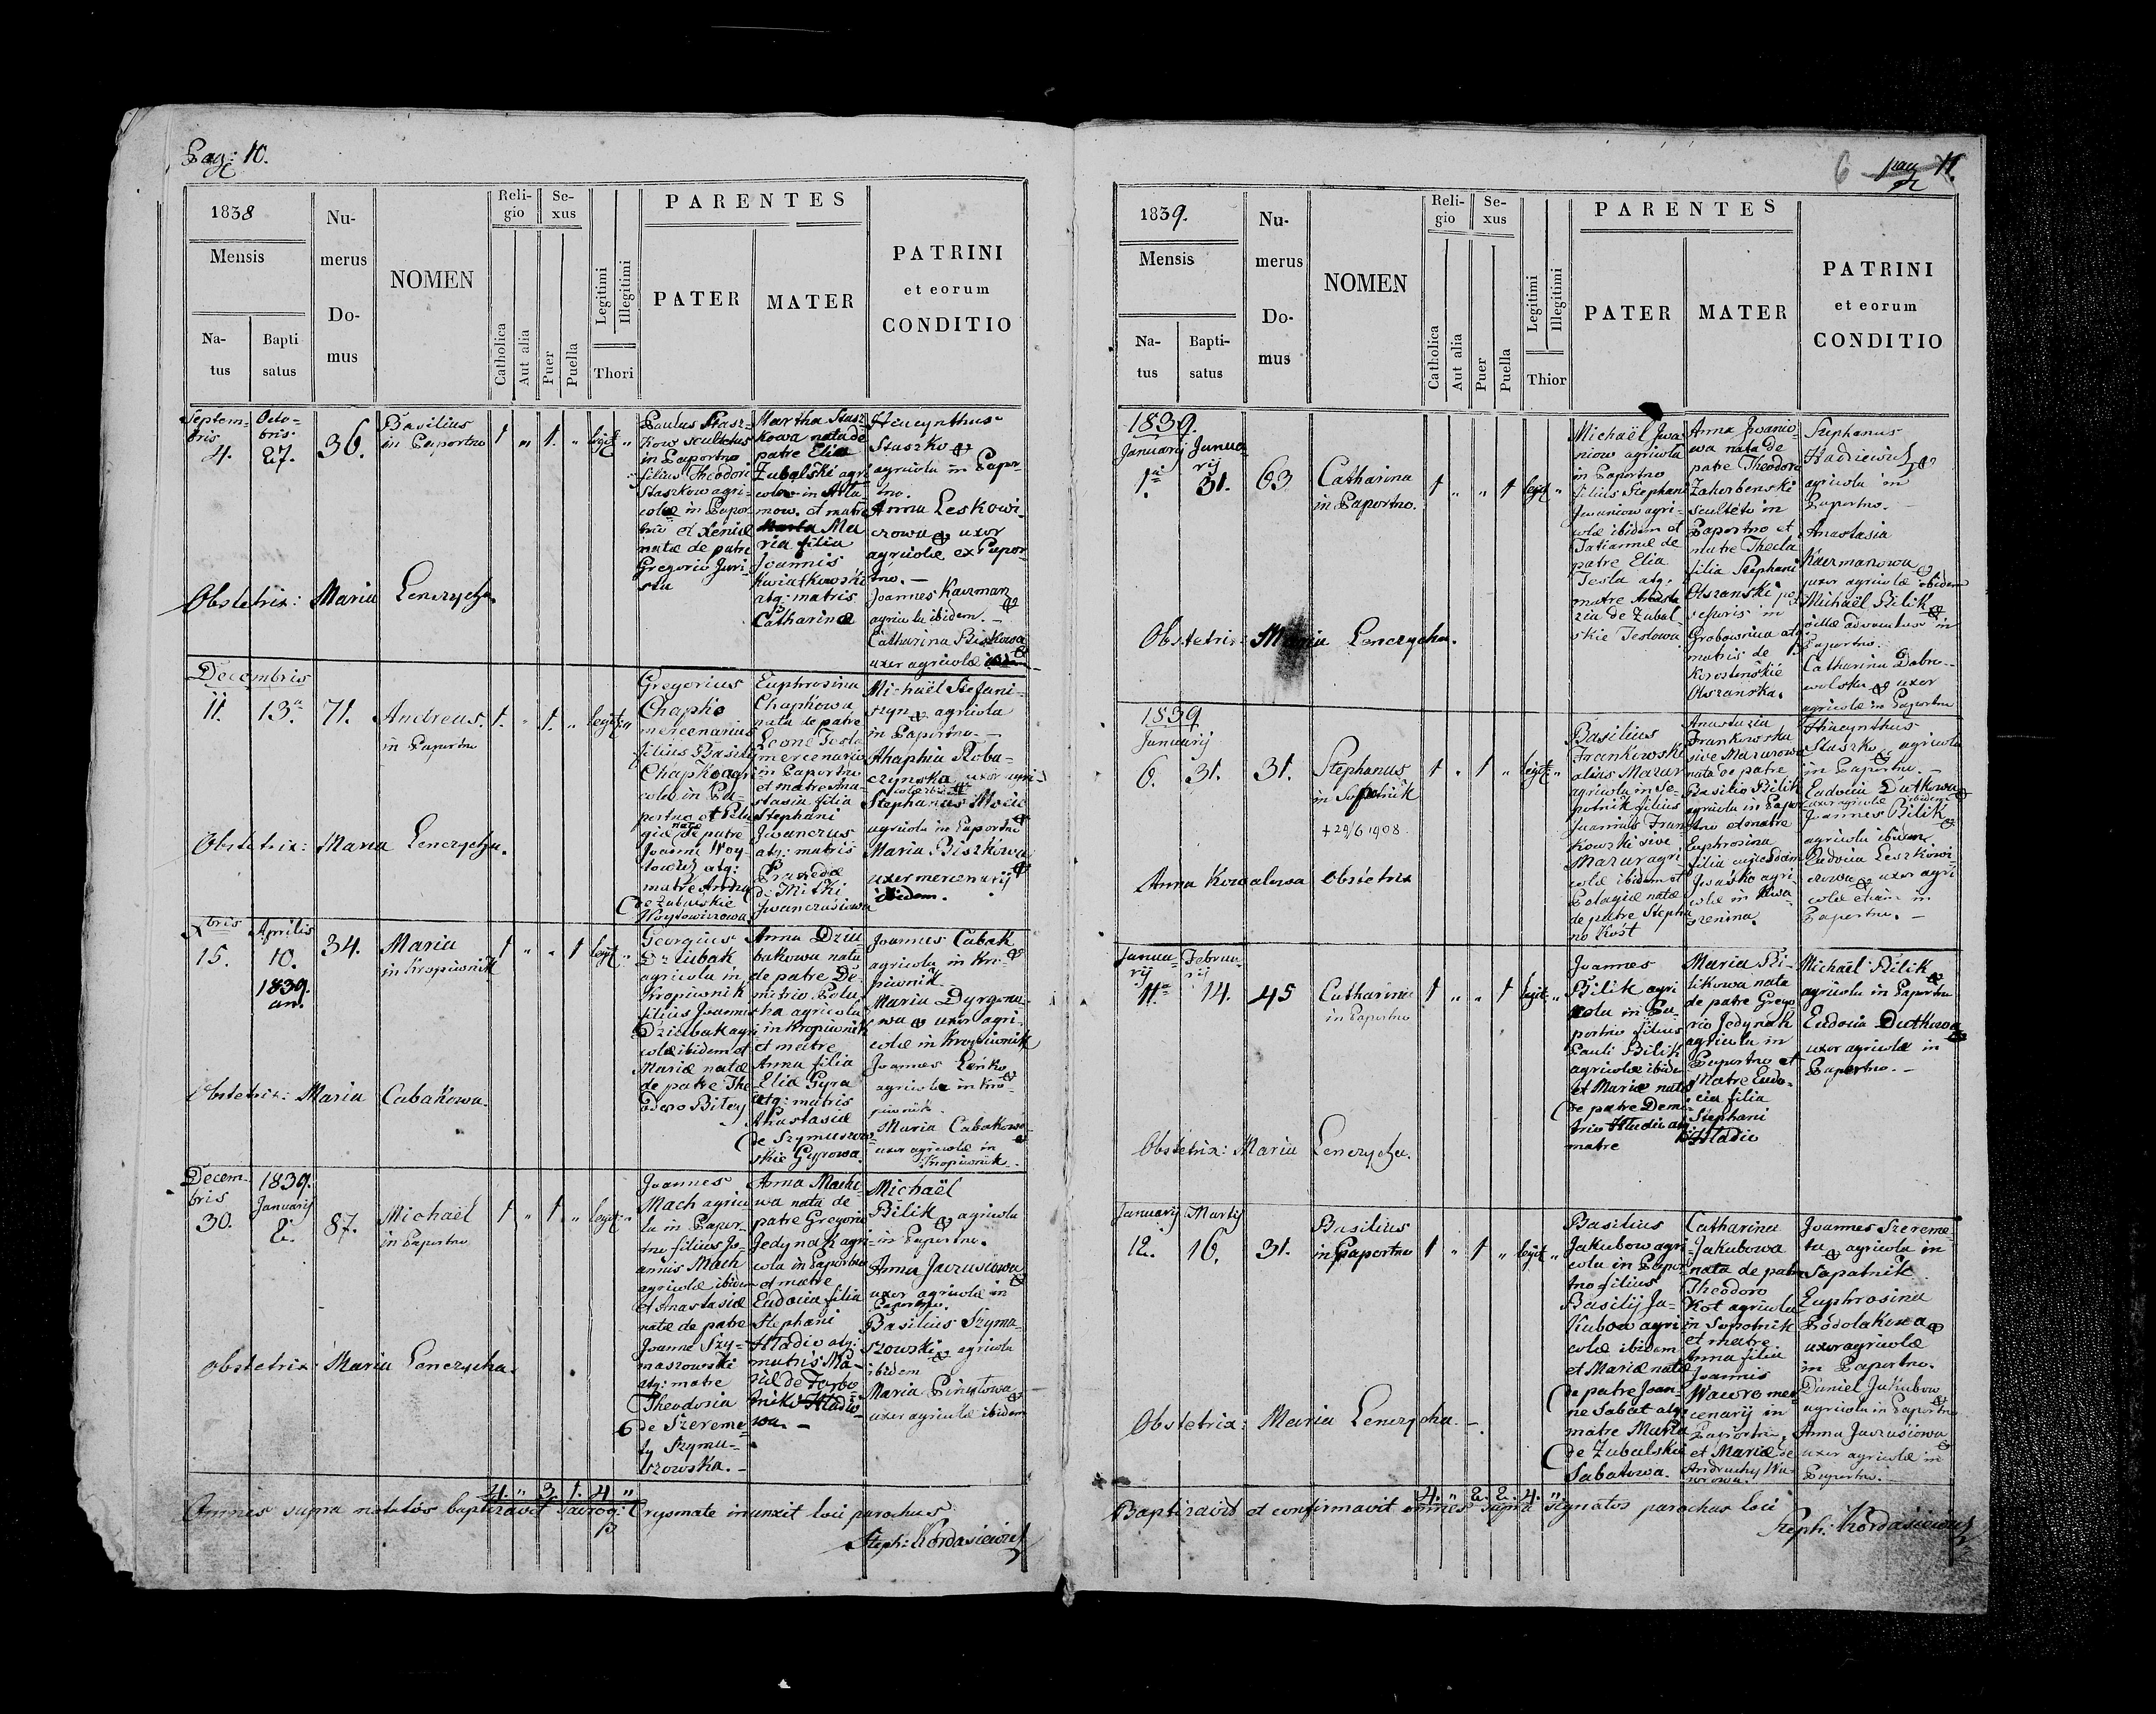 Pag: 10.
1838
Mensis
Na-
tus
Bapti
satus
Nu-
merus
Do-
mus
NOMEN
Reli-
gio
Catholica
Aut alia
Se-
xus
Puer
Puella
Legitimi
Illegitimi
Thori
PARENTES
PATER
MATER
PATRINI
et eorum
CONDITIO
Septem-
bris
4.
Octo-
bris
27.
36.
Basilius
in Paportno
1 " 1. " legit "
Paulus Stasz-
kow scultetus
in Paportno
filius Theodori
Staszkow agri-
colæ in Papor-
tno et Xeniæ
natæ de patre
Gregorio Juri-
sta
Martha Stasz-
kowa nata de
patre Elia
Zubalski agri-
cola in Arla-
mow. et matre
Ma
ria filia
Joannis
Kwiatkowski
atq: matris
Catharinæ
Hiacynthus
Staszko
agricola in Papor-
tno.
Anna Leskowi-
czowa uxor
agricolæ ex Papor-
tno. —
Joannes Kaczman
agricola ibidem. —
Catharina Biskowa
uxor agricolæ ibidem
Obstetrix: Maria Lenczycha.
Decembris
11. 13.a 71.
Andreas.
in Paportno
1. " 1. " legit: "
Gregorius
Chapko
mercenarius
filius Basilij
Chapko agri-
colæ in Pa-
portno et Pela-
giæ natæ de patre
Joanne Woy-
towicz atq:
matre Anna
de Zubalskie
Woytowiczowa
Euphrosina
Chapkowa
nata de patre
Leone Tesla
mercenario
in Paportno
et matre Ana-
stasia filia
Stephani
Jwanczus
atq: matris
Praxedæ
de Mitki
Jwanczusiowa
Michaël Stefani-
szyn agricola
in Paportno. —
Ahaphia Roba-
czynska uxor agri-
colæ
Stephanus Moic
agricola in Paportno
Maria Biszkowa
uxor mercenarij
ibidem.
Obstetrix: Maria Lenczycha.
Xbris
15.
Aprilis
10.
1839.
an.
34.
Maria
in Kropiwnik
1 " " 1 legit "
Georgius
Dziubak
agricola in
Kropiwnik
filius Joannis
Dziubak agri-
colæ ibidem et
Mariæ natæ
de patre The-
odoro Biley
Anna Dziu-
bakowa nata
de patre De-
mitrio Polu-
cha agricola
in Kropiwnik
et matre
Anna filia
Eliæ Gyra
atq: matris
Anastasiæ
de Szymuszow-
skie Gyrowa.
Joannes Cabak
agricola in Kro-
piwnik.
Maria Dyrgona-
wa uxor agri-
colæ in Kropiwnik
Joannes Lenko
agricola in Kro-
piwnik.
Maria Cabakowa
uxor agricolæ in
Kropiwnik.
Obstetrix: Maria Cabakowa.
Decem-
bris
30.
1839.
Januarij
2.
87.
Michaël
in Paportno
1 " 1. " legit: "
Joannes
Mach agrico
la in Papor-
tno filius Jo-
annis Mach
agricolæ ibidem
et Anastasiæ
natæ de patre
Joanne Szy-
maszowski
atq: matre
Theodosia
de Szereme
ty Szyma-
szowska. —
Anna Macho-
wa nata de
patre Gregorio
Jedynak agri-
cola in Paportno
et matre
Eudocia filia
Stephani
Hladio atq:
matris Ma-
riæ de
Hladio-
wa. —
Michaël
Bilik agricola
in Paportno.
Anna Jaczusiowa
uxor agricolæ in
Paportno.
Basilius Szyma-
szowski agricola
ibidem
Maria
uxor agricolæ ibidem
Obstetrix: Maria Lenczycha.
4. " 3. 1. 4 "
Omnes supra notatos baptizavit sacroq: Crysmate inunxit loci parochus
Steph: Kordasiewicz
6 pag 11.
1839.
Mensis
Na-
tus
Bapti-
satus
Nu-
merus
Do-
mus
NOMEN
Reli-
gio
Catholica
Aut alia
Se-
xus
Puer
Puella
Legitimi
Illegitimi
Thior
PARENTES
PATER
MATER
PATRINI
et eorum
CONDITIO
1839.
Januarij
1a
Janua-
rij
31.
63
Catharina
in Paportno.
1 " " 1 legit "
Michaël Jwa-
niow agricola
in Paportno
filius Stephani
Jwaniow agri-
colæ ibidem et
Tatiannæ de
patre Elia
Tesla atq:
matre Anasta
zia de Zubal-
skie Teslowa.
Anna Jwanio-
wa nata de
patre Theodoro
Zakerbenski
sculteto in
Paportno et
matre Thecla
filia Stephani
Olszanski po
in
Grobownica atq:
matris de
Krosteńskie
Olszanska.
Stephanus
Hadziewicz
agricola in
Paportno. —
Anastasia
Kaczmanowa
uxor agricolæ ibidem
Michaël Bilik
villæ advocatus in
Paportno.
Catharina Dobro-
wolska uxor
agricolæ in Paportno
Obstetrix: Maria Lenczycha.
1839
Januarij
6. 31. 31.
Stephanus
in Sopotnik
+ 29/6 1908.
1 " 1 " legit: "
Basilius
Frankowski
alius Mazur
agricola in So-
potnik filius
Joannis Fran-
kowski sive
Mazur agri-
colæ ibidem et
Pelagiæ natæ
de patre Stepha
no Kost
Anastazia
Frankowska
sive Mazurowa
nata de patre
Basilio Bilik
agricola in Papor
tno et matre
Euphrosina
filia cujusdam
Jwasko agri-
colæ in Kwa-
szenina.
Hiacynthus
Staszko agricola
in Paportno. —
Eudocia Dutkowa
uxor agricolæ ibidem
Joannes Bilik
agricola ibidem
Eudocia Leszkowi-
czowa uxor agri
colæ etiam in
Paportno. —
Anna Kowalowa obstetrix
Janua-
rij
11.a
Februa-
rij
14.
45
Catharina
in Paportno
1 " " 1 legit "
Joannes
Bilik agri
cola in Pa-
portno filius
Pauli Bilik
agricolæ ibidem
et Mariæ natæ
de patre Deme
trio Hladio atq:
matre
Maria Bi-
likowa nata
de patre Grego
rio Jedynak
agricola in
Paportno et
Matre Eudo-
cia filia
Stephani
Hladio
Michaël Bilik
agricola in Paportno
Eudocia Dutkowa
uxor agricolæ in
Paportno. —
Obstetrix: Maria Lenczycha.
Januarij
12.
Martij
16.
31.
Basilius
in Paportno
1 " 1 " legit "
Basilius
Jakubow agri-
cola in Papor-
tno filius
Basilij Ja-
kubow agri
colæ ibidem
et Mariæ natæ
de patre Joan-
ne Sabat atq:
matre Maria
de Zubalskie
Sabatowa.
Catharina
Jakubowa
nata de patre
Theodoro
Kot agricola
in Sopotnik
et matre
Anna filia
Joannis
Wawro mer
cenarij in
Paportno,
et Mariæ de
Andruchy Wa-
wrowa.
Joannes Szereme-
ta agricola in
Sopotnik
Euphrosina
Podolakowa
uxor agricolæ
in Paportno.
Daniel Jakubow
agricola in Paportno
Anna Jaczusiowa
uxor agricolæ in
Paportno. —
Obstetrix: Maria Lenczycha. —
4. " 2. 2. 4. "
Baptizavit et confirmavit omnes supra signatos parochus loci
Steph: Kordasiewicz